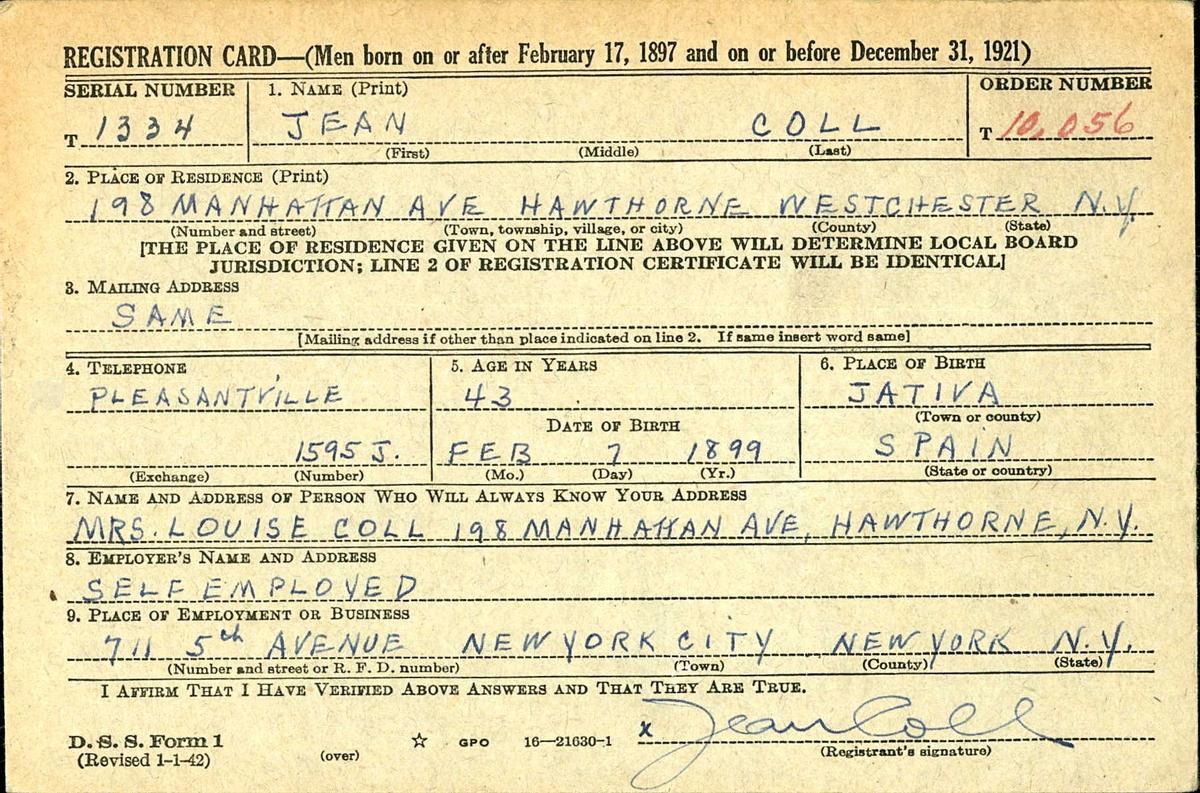 REGISTRATION CARD—(Men born on or after February 17, 1897 and on or before December 31, 1921)
SERIAL NUMBER 1. NAME (Print) ORDER NUMBER
T 1334 JEAN COLL T 10,056
(First) (Middle) (Last)
2. PLACE OF RESIDENCE (Print)
198 MANHATTAN AVE HAWTHORNE WESTCHESTER N.Y.
(Number and street) (Town, township, village, or city) (County) (State)
[THE PLACE OF RESIDENCE GIVEN ON THE LINE ABOVE WILL DETERMINE LOCAL BOARD
JURISDICTION; LINE 2 OF REGISTRATION CERTIFICATE WILL BE IDENTICAL]
3. MAILING ADDRESS
SAME
[Mailing address if other than place indicated on line 2. If same insert word same]
4. TELEPHONE 5. AGE IN YEARS 6. PLACE OF BIRTH
PLEASANTVILLE 43 JATIVA
(Town or county)
DATE OF BIRTH
1595 J. FEB 7 1899 SPAIN
(Exchange) (Number) (Mo.) (Day) (Yr.) (State or country)
7. NAME AND ADDRESS OF PERSON WHO WILL ALWAYS KNOW YOUR ADDRESS
MRS. LOUISE COLL 198 MANHATTAN AVE, HAWTHORNE, N.Y.
8. EMPLOYER'S NAME AND ADDRESS
SELF EMPLOYED
9. PLACE OF EMPLOYMENT OR BUSINESS
711 5th AVENUE NEW YORK CITY NEW YORK N.Y.
(Number and street or R. F. D. number) (Town) (County) (State)
I AFFIRM THAT I HAVE VERIFIED ABOVE ANSWERS AND THAT THEY ARE TRUE.
x Jean Coll
D. S. S. Form 1
(Revised 1-1-42) (over) ☆ GPO 16—21630-1 (Registrant's signature)